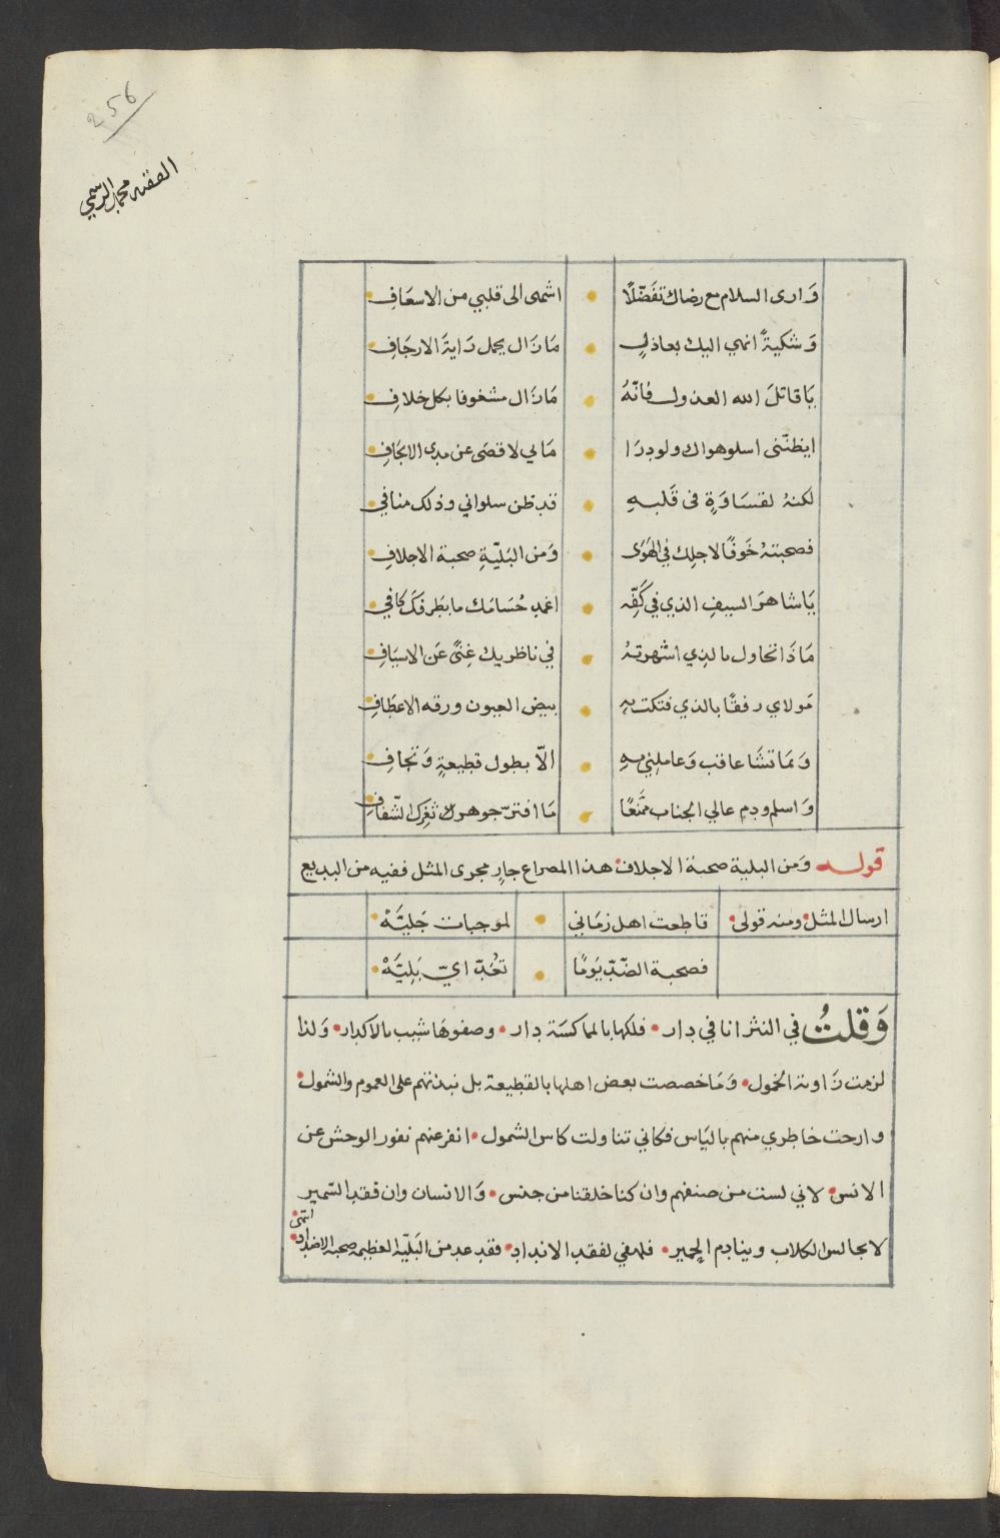 256
الفقيه محمد الرسمي
وَارى السلام مع رضاك تفَضّلًا • اشهى الى قلبي من الاسعَافِ
وَشكيةً انهي اليك بعاذلٍ • مَا زَال يحمل رَايَة الارجَافِ
يَا قاتلَ الله العذول فانّهُ • مَا زَال مشغوفا بكل خلافِ
ايظنّنى اسلو هواك ولو درَا • مَا لي لاقصَى عن مدى الايجَافِ
لكنهُ لقسَاوَةٍ فى قَلبهِ • قد ظن سلواني وذلك منافي
فصحبتهُ خَوفًا لاجلك في الهَوَى • وَمن البَليّةِ صحبة الاجلافِ
يَا شاهرَ السيفِ الذي في كَفِّه • اغمد حُسَامَك ما بطَرفكَ كافي
مَا ذَا تحاول بالذي اشهرتهُ • في ناظريك غِنىً عَن الاسيَافِ
مَولاي رفقًا بالذي فتكت بهِ • بيض العيون ورقه الاعطَافِ
وَبمَا تشَا عاقب وَعاملني بهِ • الاّ بطول قطيعةٍ وَتجافِ
وَاسلم ودم عالي الجناب ممَنّعًا • مَا افترّ جوهر ثَغرِك الشّفافِ
قوله وَمن البلية صحبة الاجلاف هذا المصراع جارٍ مجرى المثل ففيه من البديع
ارسال المثل • ومنه قولى • قاطعت اهل زمَاني • لموجبات جَليَّهْ •
فصحبة الضّدّ يَومًا • تعُدّ ايّ بَليَّهْ •
وَقلتُ في النثر انا في دار • فلكها بالمعاكسَة دار • وصفوهَا شيب بالاكدار • وَلذا
لزمت زَاوية الخمول • وَمَا خصصت بعض اهلها بالقطيعة بل نبذتهم على العموم والشمول •
وارحت خاطري منهم باليَاس فكاني تناولت كاس الشمول • انفر عنهم نفور الوحش عن
الانس • لاني لست من صنفهم وان كنا خلقنا من جنس • وَالانسان وان فقد السّمير
لا يجالس الكلاب وينادم الحمير • فلهفي لفقد الانداد • فقد عد من البَليّة العظيمه صحبة الاضداد •
انتهى